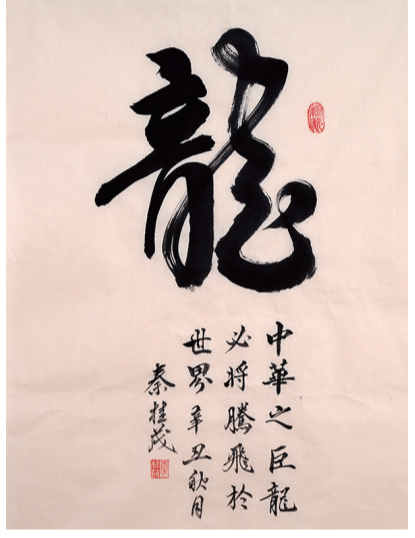 龍
中華之巨龍
必將騰飛於
世界 辛丑秋月
秦桂茂